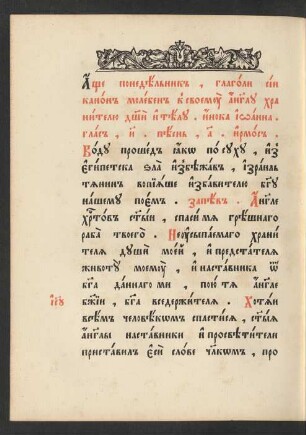 Аще понедѣльникъ, глаголи сїй
канонъ молебенъ къ своемꙋ а҆́гг҃лꙋ хра
нителю дш҃и и҆ тѣлꙋ, и҆нока і҆ѡа́нна
гласъ, и҃. пѣснь, а҃. і҆рмо́съ.
Во́дꙋ проше́дъ ꙗ҆́кѡ по сꙋ́хꙋ, и҆ и҆з̾
є҆гі́петска ѕла̀ и҆збѣжа́въ, і҆зра́иль
тѧнинъ вопїѧ́ше и҆зба́вителю бг҃ꙋ
на́шемꙋ пое́мъ. Запѣ́въ. А҆́гг҃ле
хрⷭ҇то́въ ст҃ы́й, спасѝ мѧ грѣ́шнаго
раба̀ твоего̀. Неꙋсыпа́емаго храни́
телѧ дꙋшѝ мое́й, и҆ предста́телѧ
животꙋ̀ моемꙋ̀, и҆ наста́вника ѿ
бг҃а да́ннаго ми, пою́ тѧ а҆́гг҃ле
бж҃їй, бг҃а вседержи́телѧ. Хотѧ́й
і҆ꙋ
всѣ́мъ человѣ́комъ спасти́сѧ, ст҃ы́ѧ
а҆́гг҃лы наста́вники и҆ просвѣти́тели
приста́вилъ є҆сѝ сло́ве чл҃комъ, про